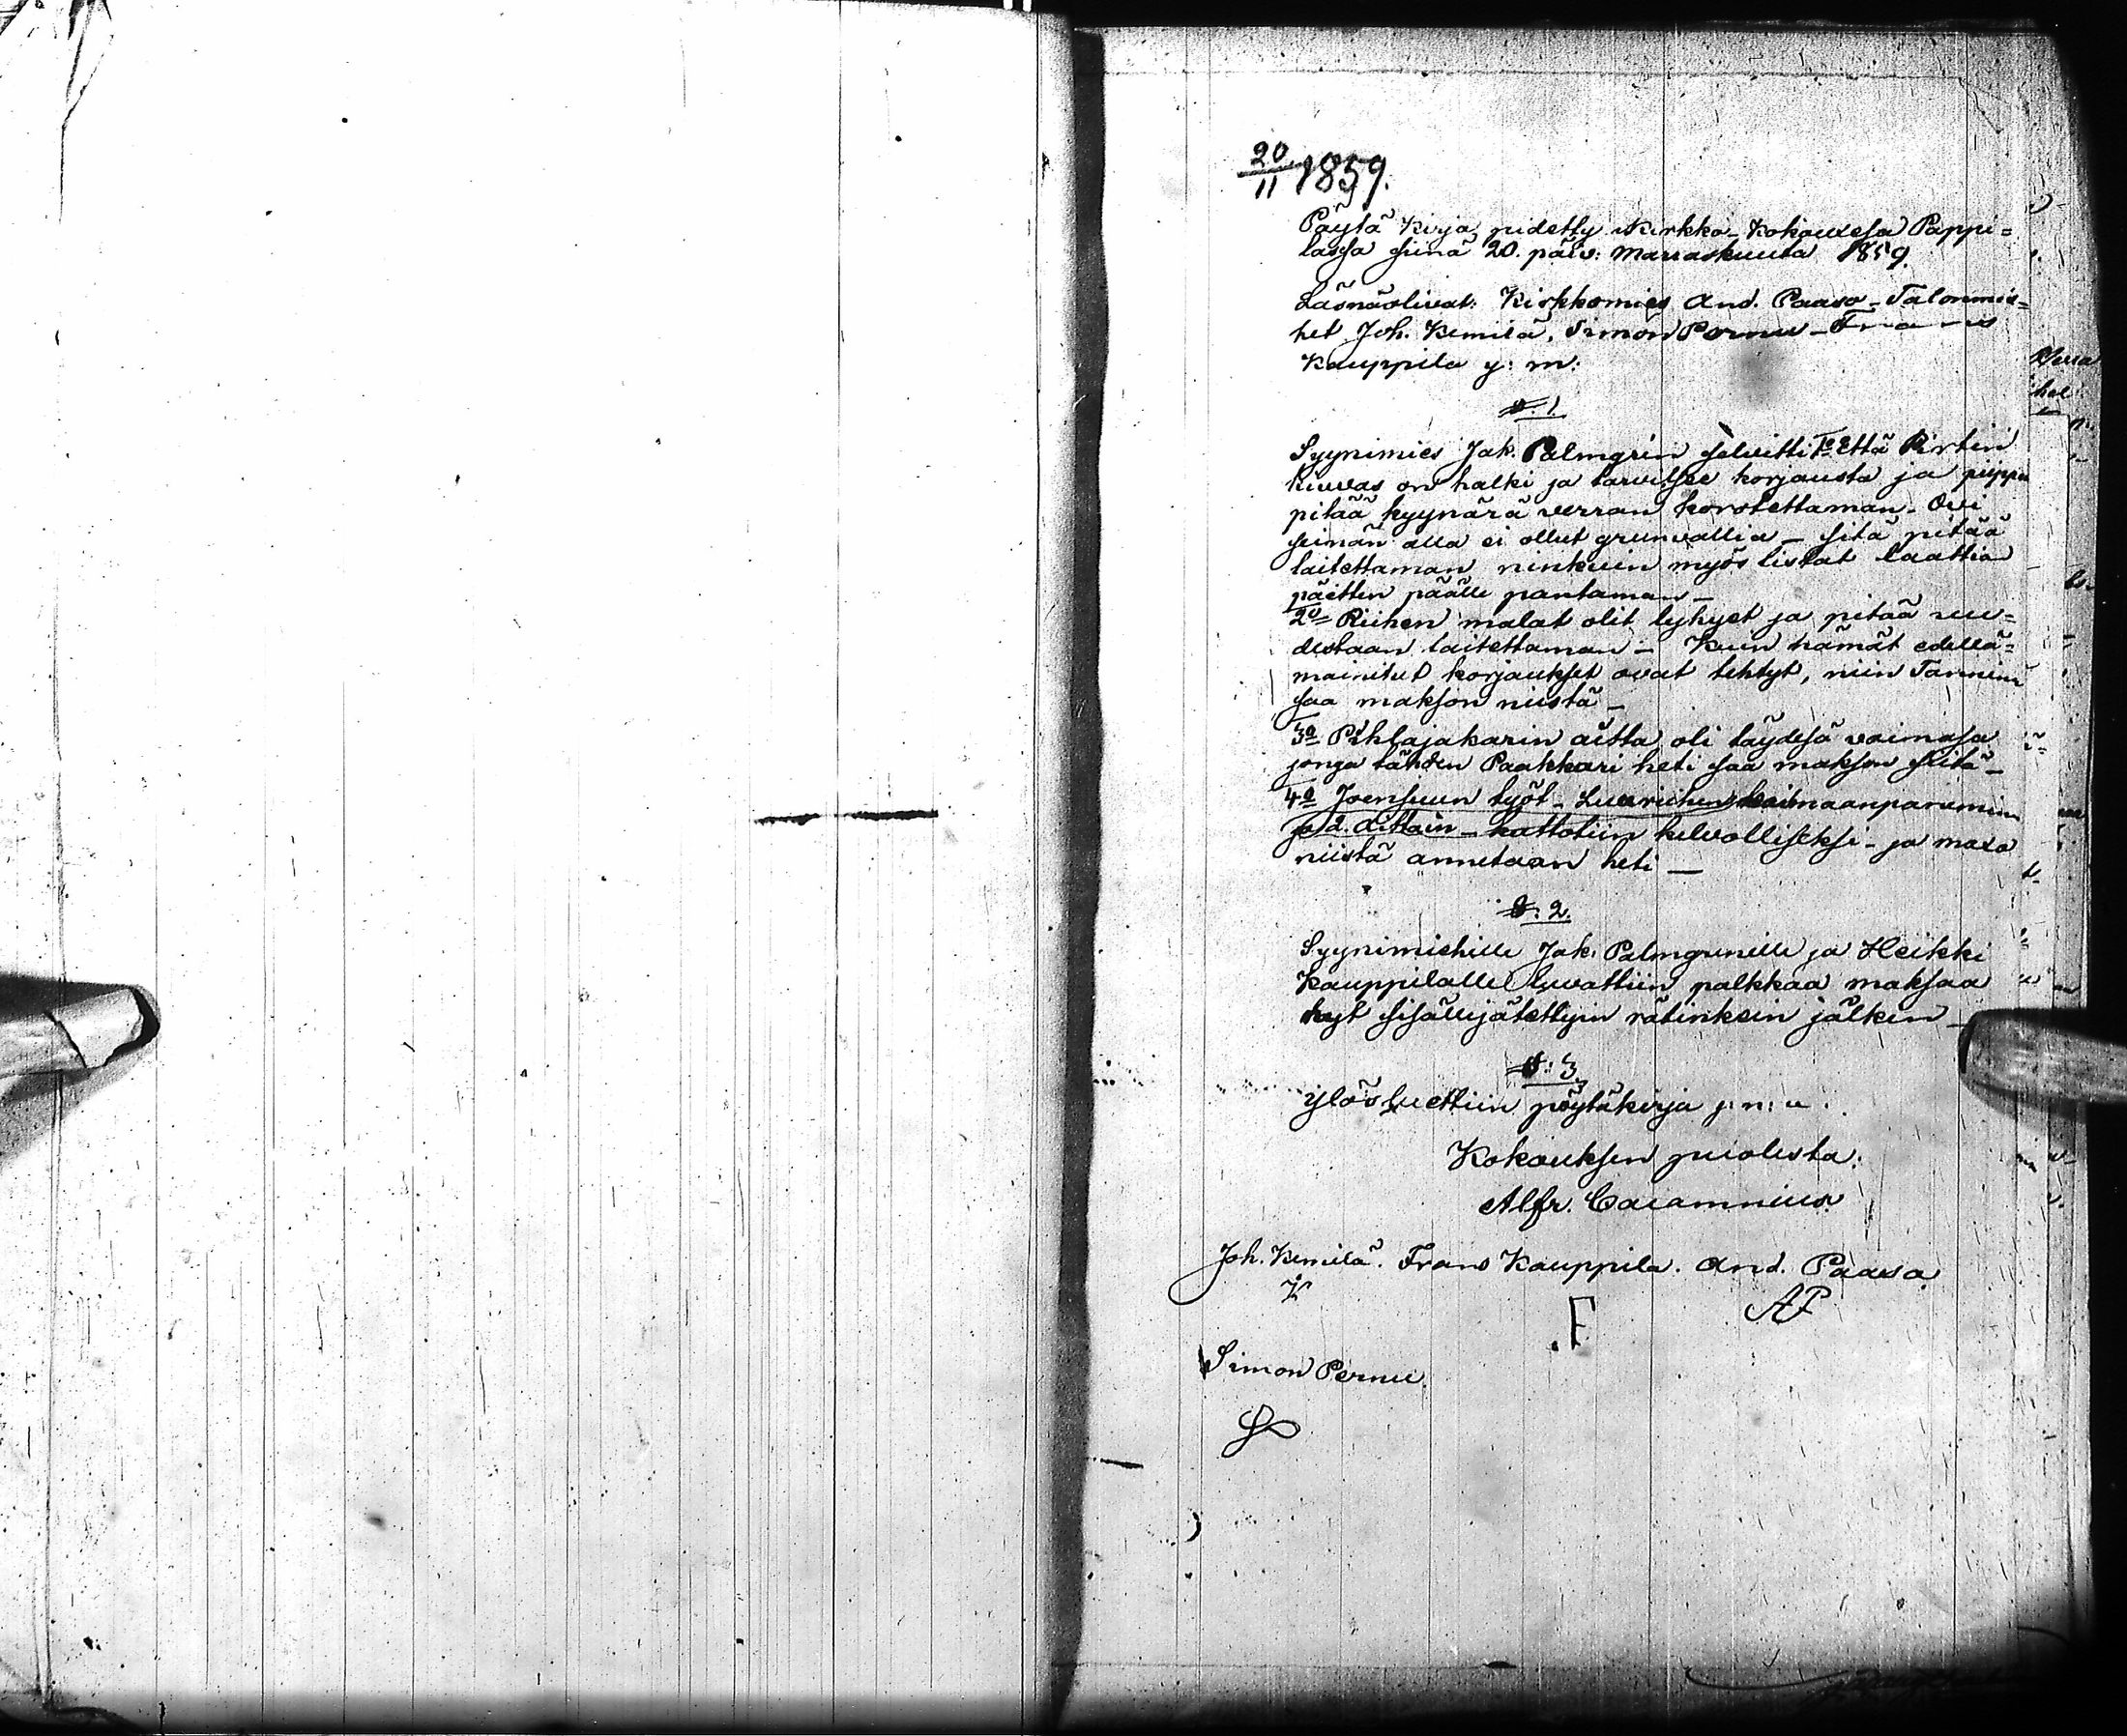 20/11 1859.
Pöytä Kirja, pidetty Kirkko-Kokouxesa Pappi=
lassa siinä 20. päiv: Marraskuuta 1859.
Läsnäolivat: Kirkkomies And. Paaso - Talonmie=
het Joh. Kemilä, Simon Pernu - Frans
Kauppila y: m:
§. 1.
Syynimies Jak. Palmgrén selvitti 1o Että Pirtin
kiuvas on halki ja tarvitsee korjausta ja
pitää kyynärä verran korotettaman. Ovi
seinän alla ei ollut grunvallia - sitä pitää
laitettaman ninkuin myös listat laattia
päitten päälle pantaman -
2o Riihen malat olit lyhyet ja pitää uu=
destaan laitettaman - Kuin nämät edellä=
mainitut korjaukset ovat tehtyt, niin
saa makson niistä -
3o Pihlajakarin aitta oli täydesä voimasa
jonga tähden Paakkari heti saa makson siitä -
4o Joensuun työt - Luuriihen
ja 2. Aittain - kattotiin kelvolliseksi - ja maxo
niistä annetaan heti -
§: 2.
Syynimiehille Jak. Palmgrenille ja Heikki
Kauppilalle luvattiin palkkaa maksaa
nyt sisällejätettyin rätinkein jälken -
§: 3
Ylösluettiin pöytäkirja
Kokouksen puolesta:
Alfr. Cajamnius
Joh. Kemilä. Frans Kauppila. And. Paaso
K
F
AP
Simon Pernu.